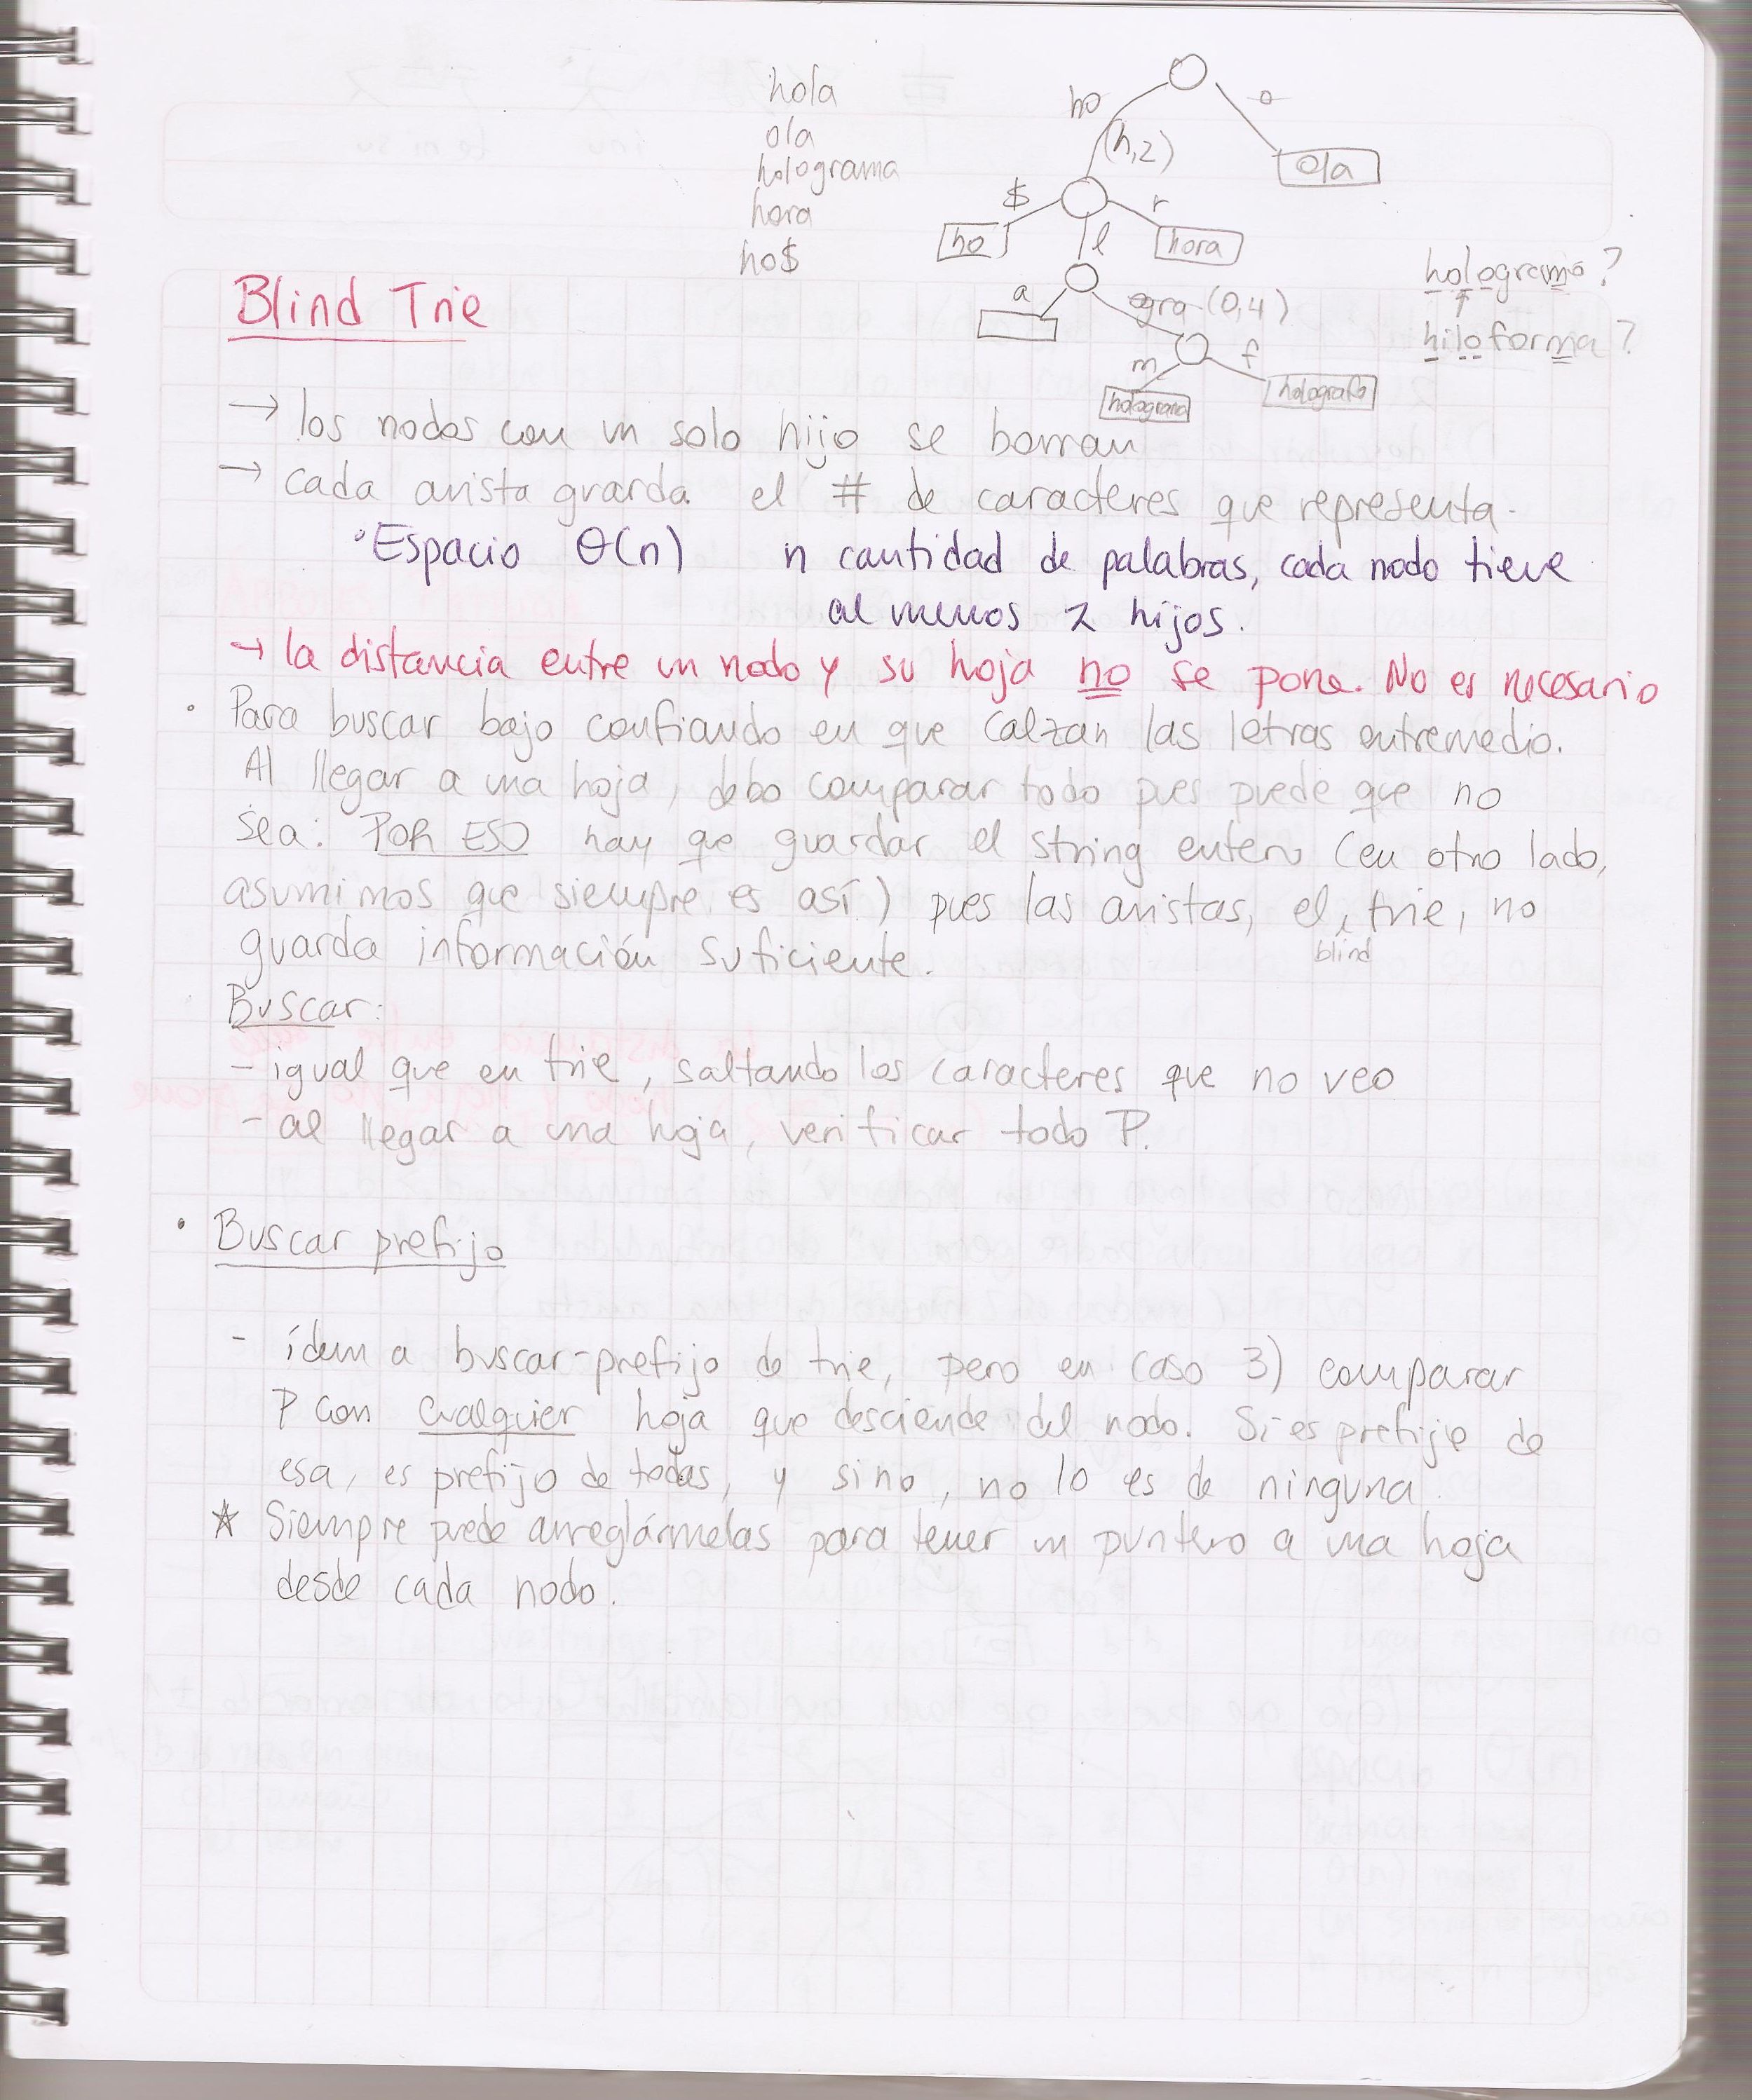 hola
ola
holograma
hora
ho$
ho
(h,2)
o
ola
$
r
ho
l
hora
a
ogra (o,4)
m
f
holograma
holografo
holograma?
hiloforma?
Blind Trie
→ los nodos con un solo hijo se borran
→ cada arista guarda el # de caracteres que representa.
• Espacio θ(n) n cantidad de palabras, cada nodo tiene
al menos 2 hijos.
→ la distancia entre un nodo y su hoja no se pone. No es necesario
• Para buscar bajo confiando en que calzan las letras entremedio.
Al llegar a una hoja, debo comparar todo pues puede que no
sea. POR ESO hay que guardar el string entero (en otro lado,
asumimos que siempre es así) pues las aristas, el blind trie, no
guarda información suficiente.
Buscar:
- igual que en trie, saltando los caracteres que no veo
- al llegar a una hoja, verificar todo P.
• Buscar prefijo
- ídem a buscar-prefijo de trie, pero en caso 3) comparar
P con cualquier hoja que desciende del nodo. Si es prefijo de
esa, es prefijo de todas, y sino, no lo es de ninguna
★ Siempre puede arreglármelas para tener un puntero a una hoja
desde cada nodo.